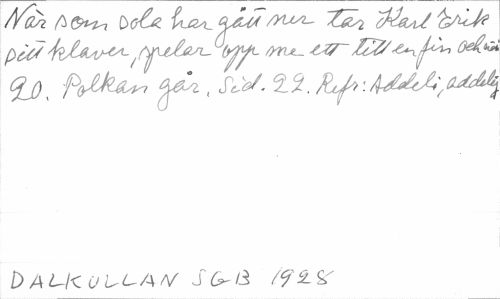 När som sola har gått ner tar Karl Erik
sitt klaver, spelar opp me ett titt en fin och
20. Polkan går. Sid. 22. Refr: Addeli, addeli
DALKULLAN SGB 1928